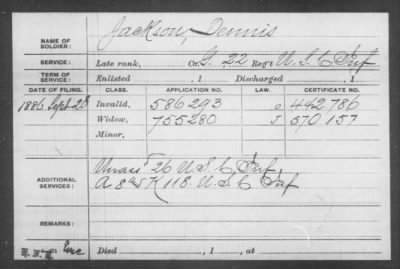 NAME OF SOLDIER: Jackson, Dennis
SERVICE: Late rank, Co. G. 22 Reg't U.S.C. Inf.
TERM OF SERVICE: Enlisted , 1 Discharged , 1
DATE OF FILING. CLASS. APPLICATION NO. LAW. CERTIFICATE NO.
1886 Sept 28 Invalid, 586293 442.786
Widow, 755280 570157
Minor,
ADDITIONAL SERVICES: 26 U.S.C. Inf.
118. U.S.C. Inf
REMARKS:
Died , 1 , at